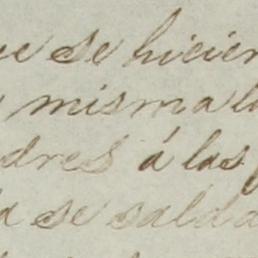 se hicier
misma la
dres á las
se salda